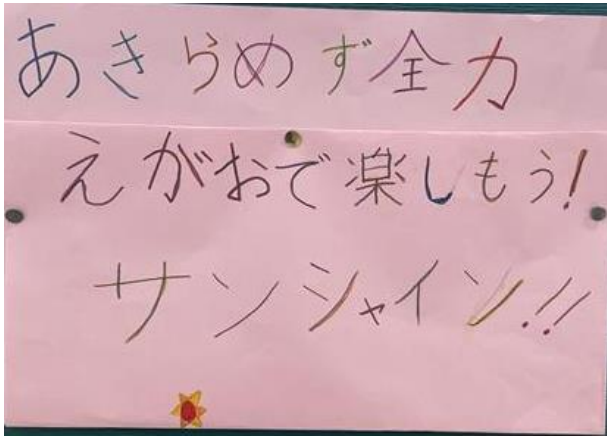 あきらめず全力
えがおで楽しもう!
サンシャイン!!